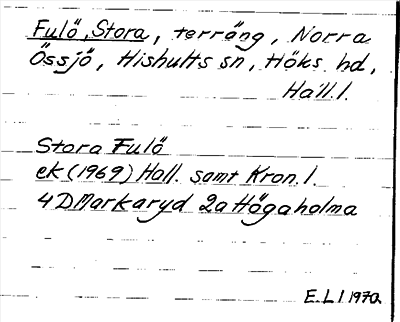 Fulö, Stora, terräng, Norra
Össjö, Hishults sn, Höks hd,
Hall.l.
Stora Fulö
ek (1969) Hall. samt Kron.l.
4D Markaryd 2a Högaholma
E.L l 1970